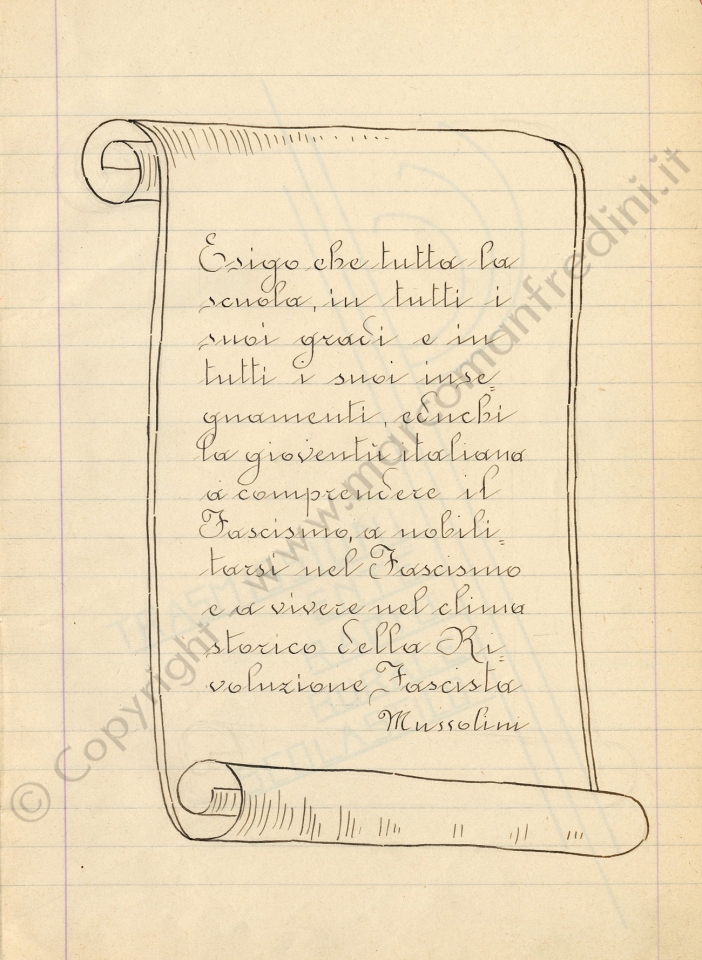 Esigo che tutta la
scuola, in tutti i
suoi gradi e in
tutti i suoi inse=
gnamenti, educhi
la gioventù italiana
a comprendere il
Fascismo, a nobili=
tarsi nel Fascismo
e a vivere nel clima
storico della Ri=
voluzione Fascista
Mussolini
© Copyright - www.marcomanfredini.it